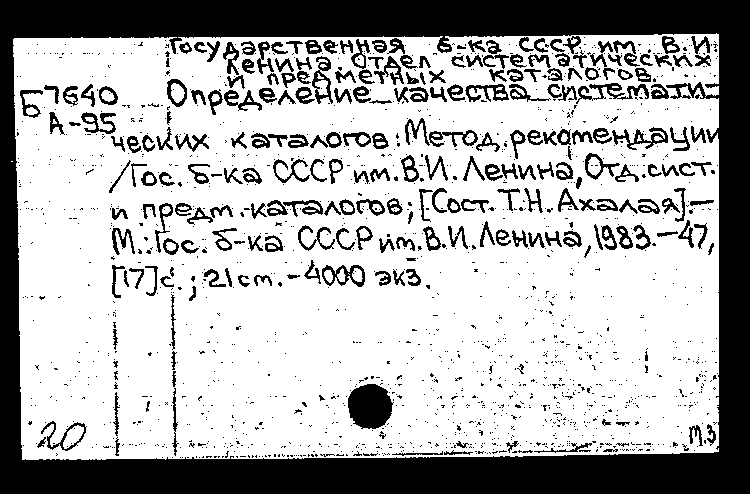 Государственная б-ка СССР им. В.И.
Ленина. Отдел систематических
и предметных каталогов.
Б 7640
А-95
Определение качества системати-
ческих каталогов: Метод. рекомендации
/Гос. б-ка СССР им. В.И. Ленина, Отд. сист.
и предм. каталогов; [Сост. Т.Н. Ахалая].—
М.: Гос. б-ка СССР им. В.И. Ленина, 1983.—47,
[17]с.; 21 см. — 4000 экз.
20
М.З